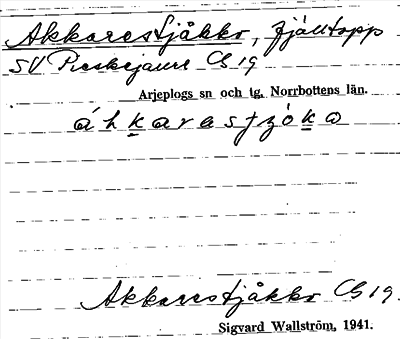 Akkarestjåkko, fjälltopp
SV Pieskejaure Cb 19
Arjeplogs sn och tg, Norrbottens län.
áhkarestjåkko
Akkarestjåkko Cb 19.
Sigvard Wallström, 1941.